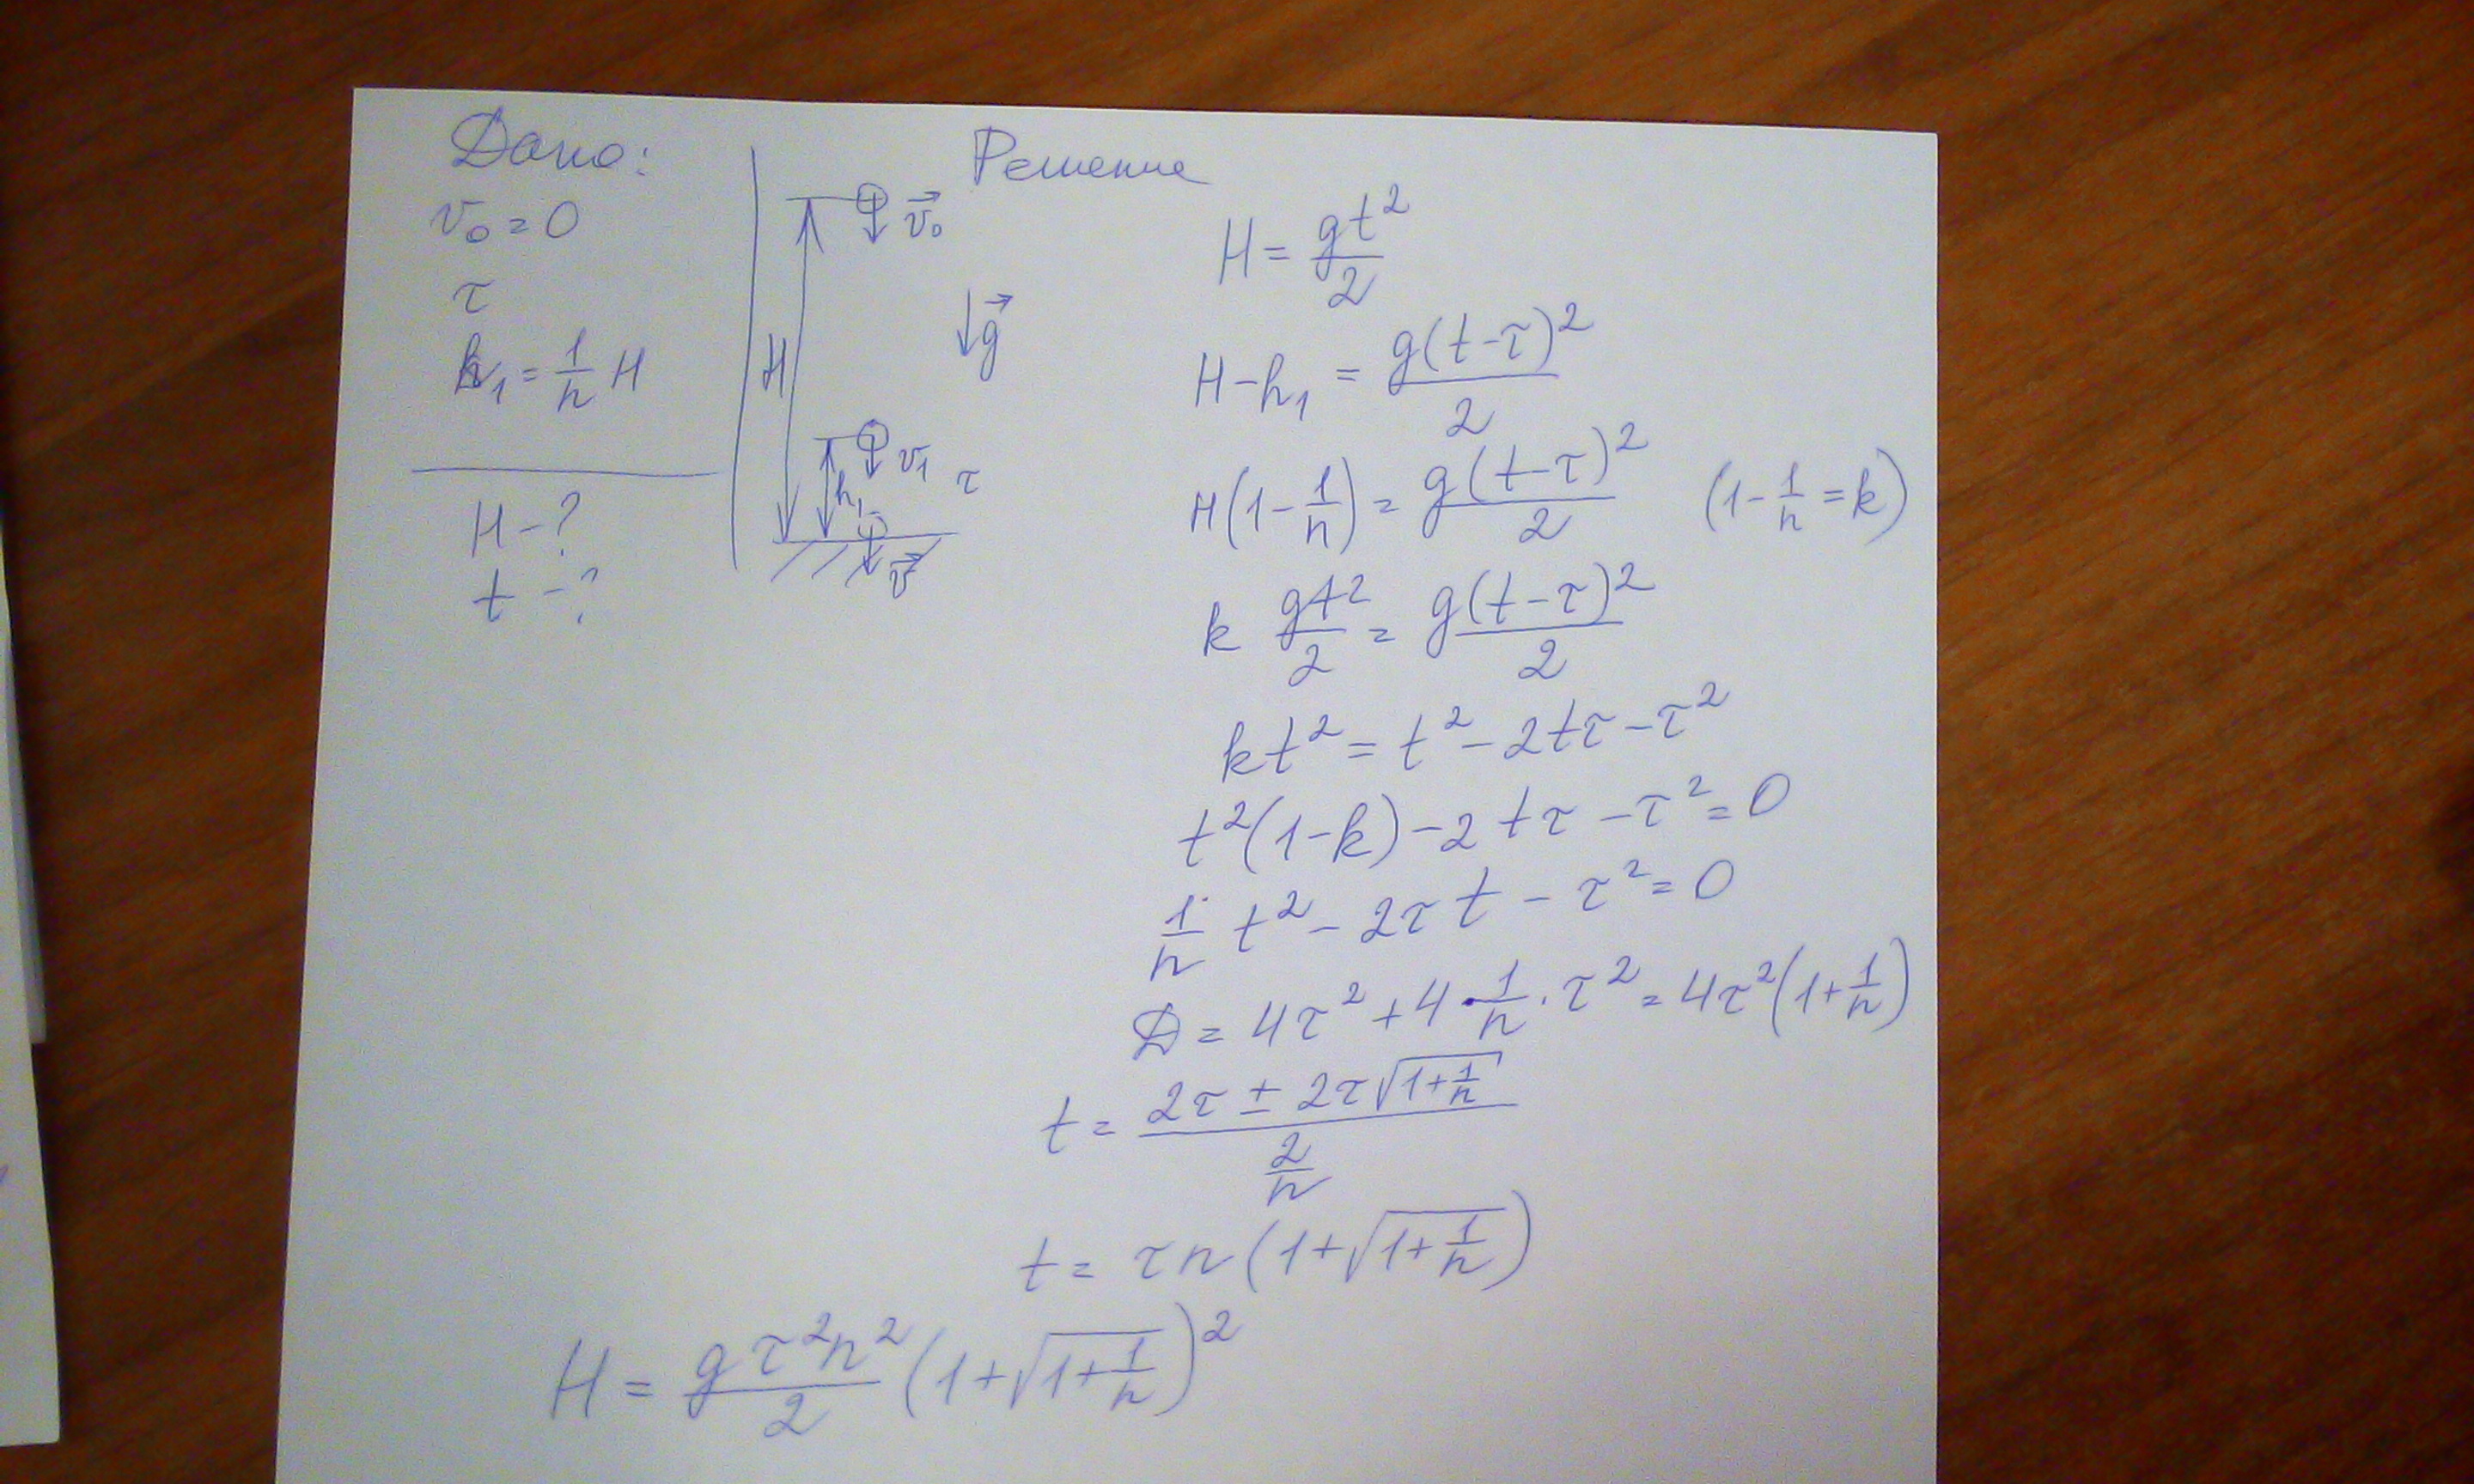 Дано:
v₀ = 0
τ
h₁ = 1/n H
H - ?
t - ?
H
v⃗₀
g⃗
h₁
v₁ τ
v⃗
Решение
H = gt²/2
H - h₁ = g(t-τ)²/2
H(1 - 1/n) = g(t-τ)²/2 (1 - 1/n = k)
k gt²/2 = g(t-τ)²/2
kt² = t² - 2tτ - τ²
t²(1-k) - 2tτ - τ² = 0
1/n t² - 2τt - τ² = 0
Д = 4τ² + 4·1/n·τ² = 4τ²(1 + 1/n)
t = (2τ ± 2τ√(1 + 1/n))/(2/n)
t = τn(1 + √(1 + 1/n))
H = gτ²n²/2 (1 + √(1 + 1/n))²